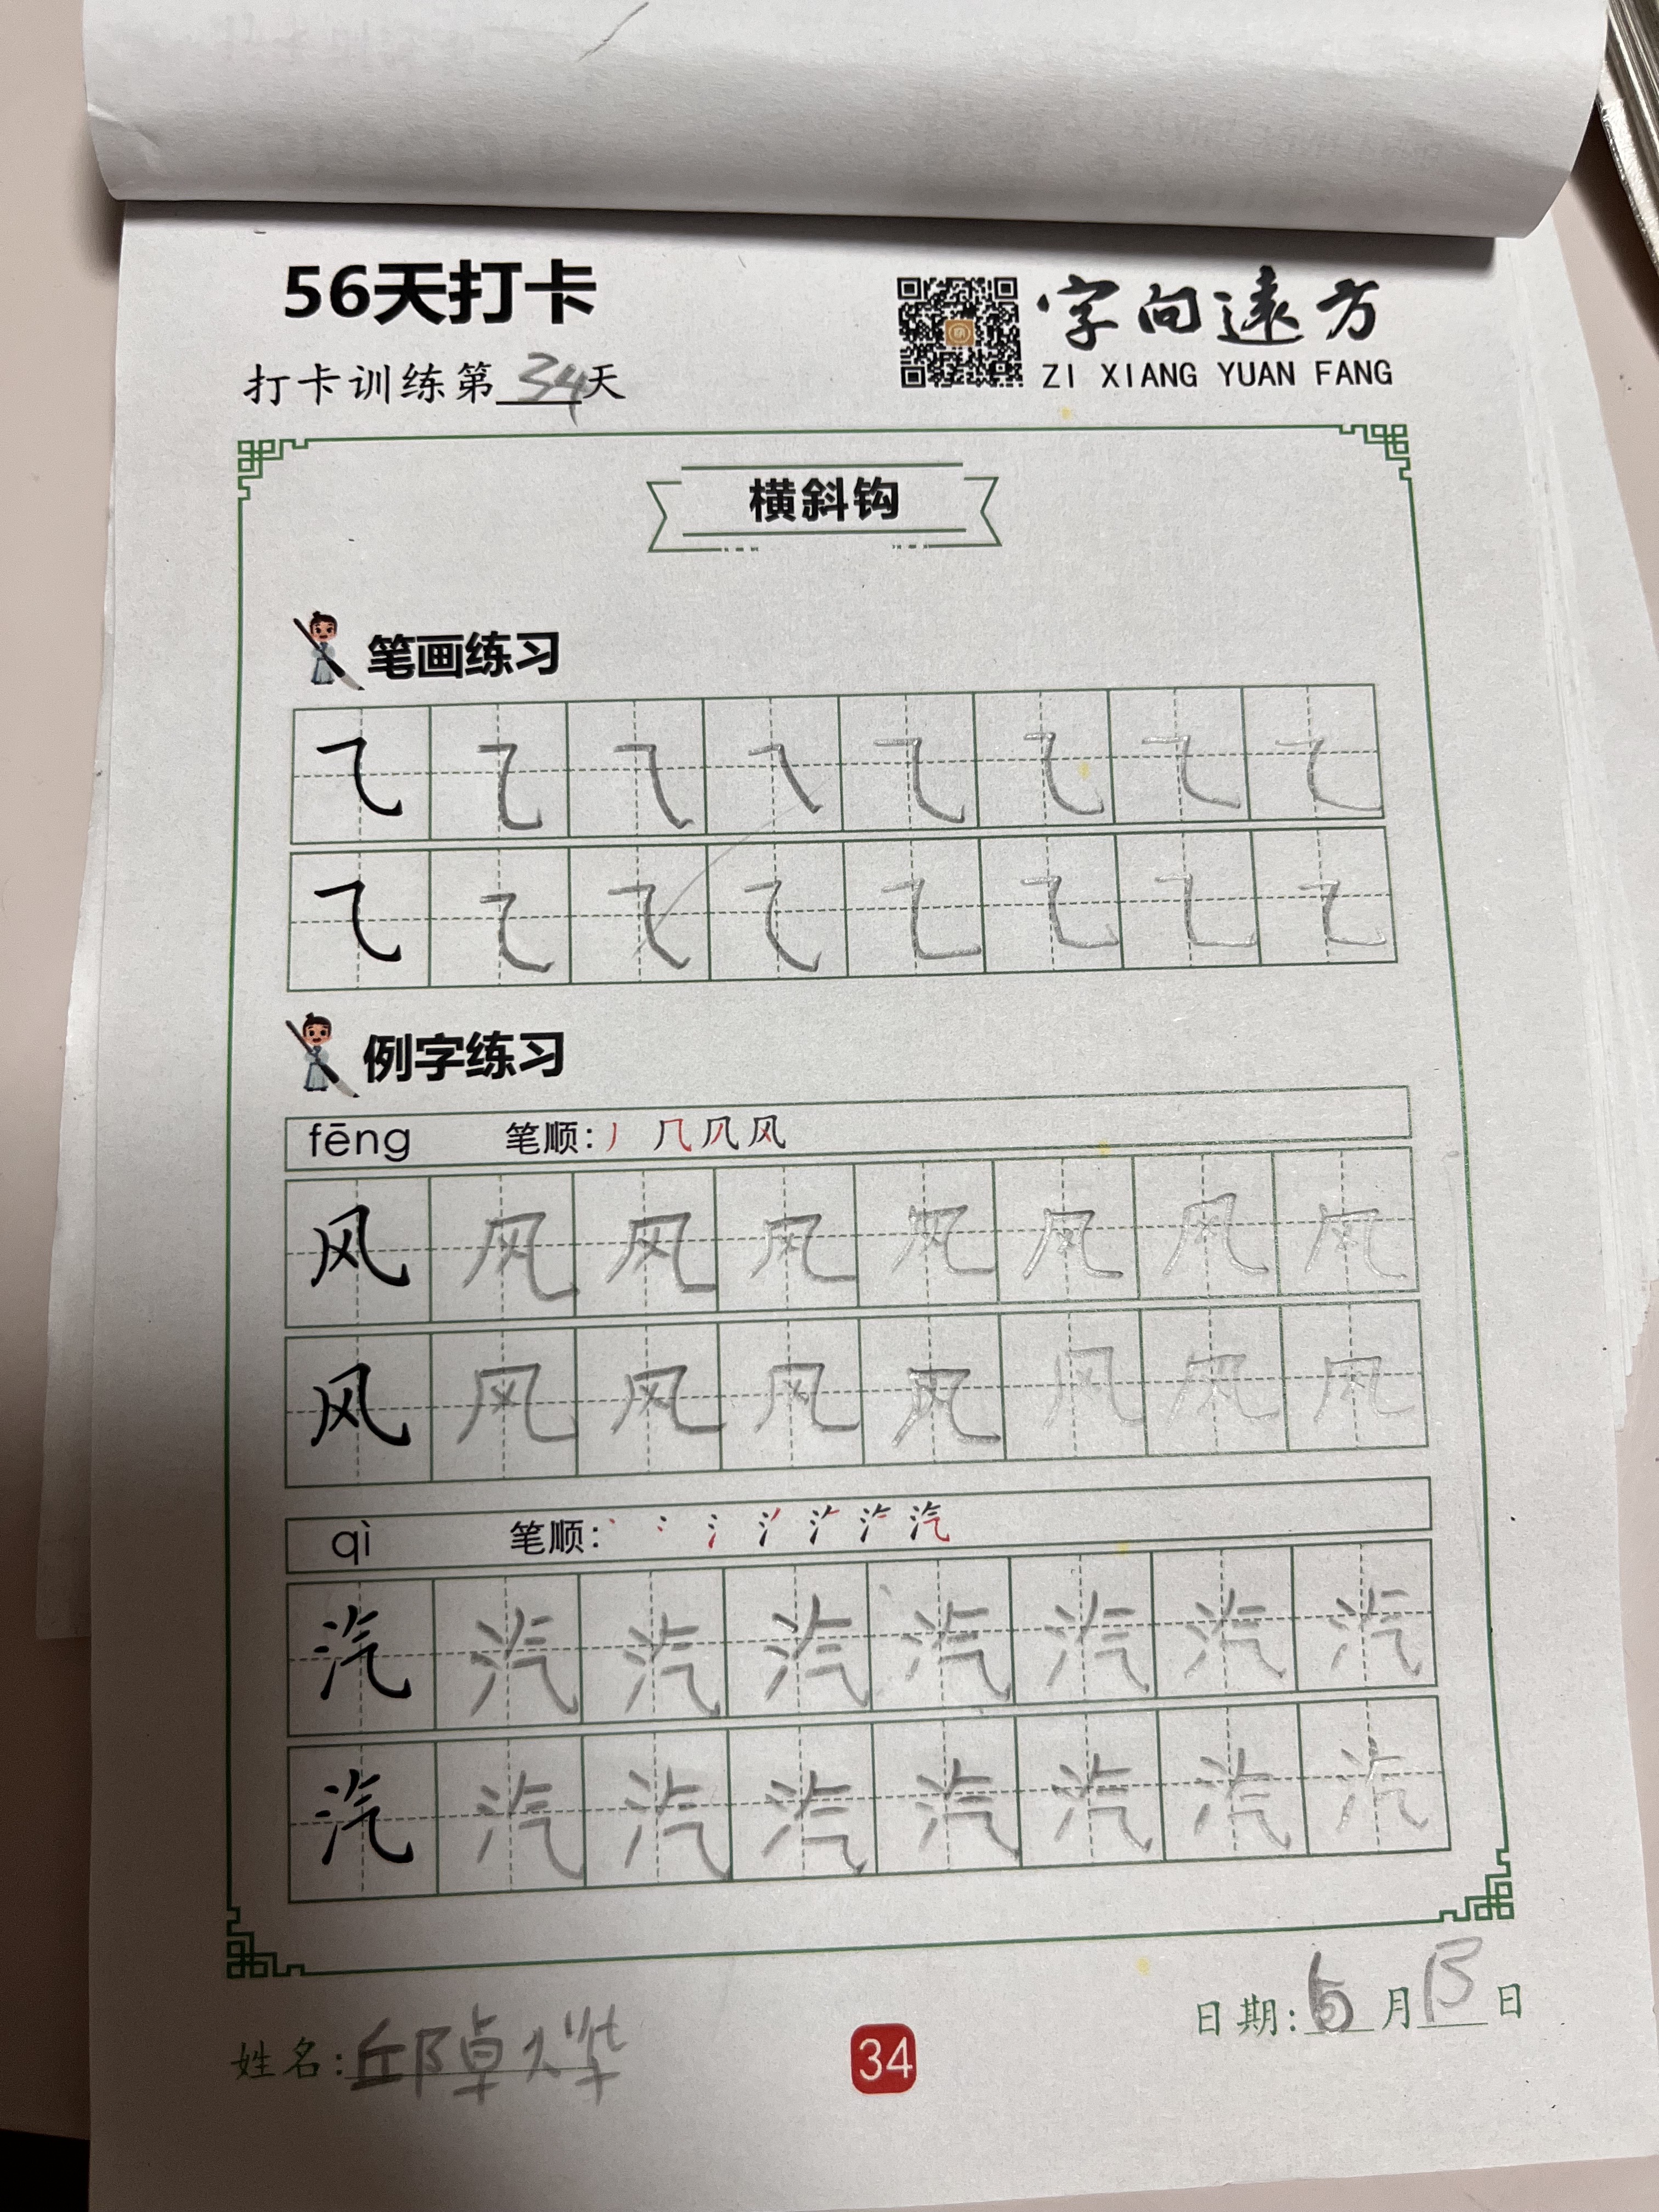 56天打卡
字向遠方
打卡训练第34天
ZI XIANG YUAN FANG
横斜钩
笔画练习
㇈ ㇈ ㇈ ㇈ ㇈ ㇈ ㇈ ㇈
㇈ ㇈ ㇈ ㇈ ㇈ ㇈ ㇈ ㇈
例字练习
fēng 笔顺: 丿 ⺇ 风
风 风 风 风 风 风 风 风
风 风 风 风 风 风 风 风
qì 笔顺: 丶 冫 氵 汽
汽 汽 汽 汽 汽 汽 汽 汽
汽 汽 汽 汽 汽 汽 汽 汽
日期: 月 日
姓名: 邱卓烨
34